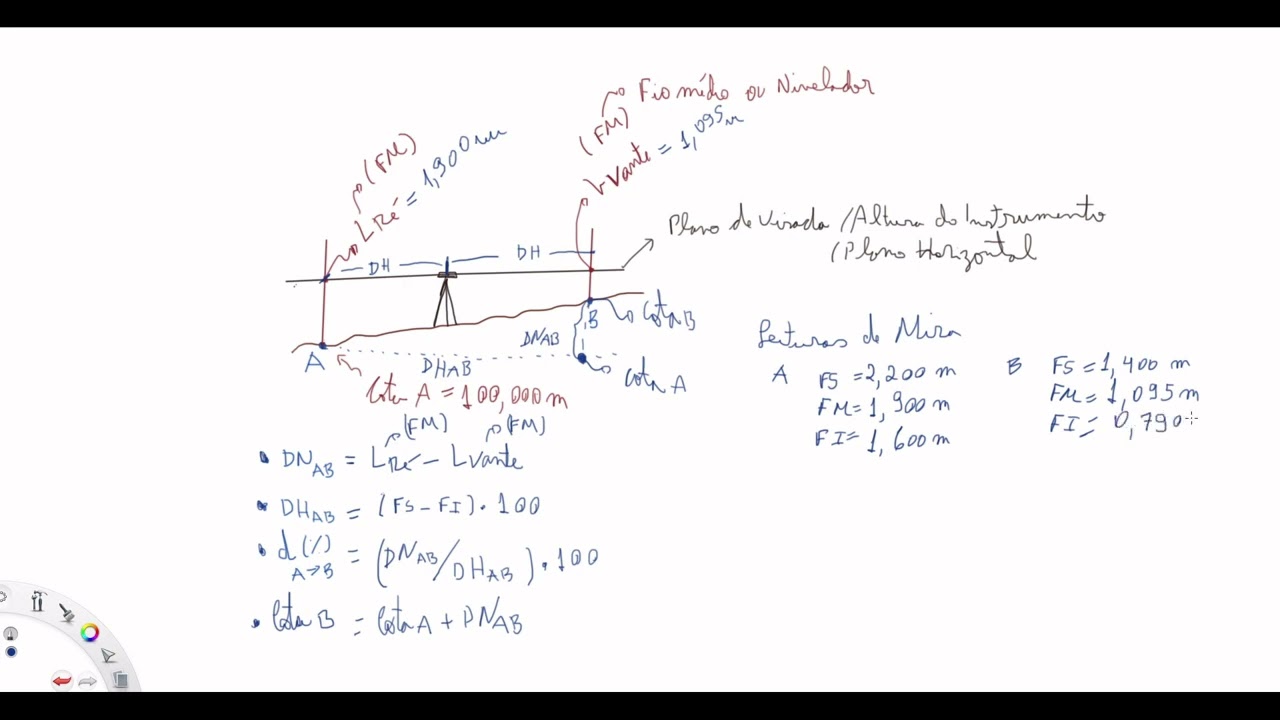 Fio médio ou Nivelador
(FM)
LVante = 1,095m
(FM)
LRé = 1,900m
Plano de Visada /Altura do Instrumento
/Plano Horizontal
DH
DH
B
Cota B
DNAB
A
DHAB
Cota A
Cota A = 100,000m
Leituras de Mira
A FS = 2,200 m
FM = 1,900 m
FI = 1,600 m
B FS = 1,400 m
FM = 1,095 m
FI = 0,790
(FM) (FM)
• DNAB = LRé - LVante
• DHAB = (FS - FI) . 100
• d(%) A→B = (DNAB/DHAB) . 100
• Cota B = Cota A + DNAB